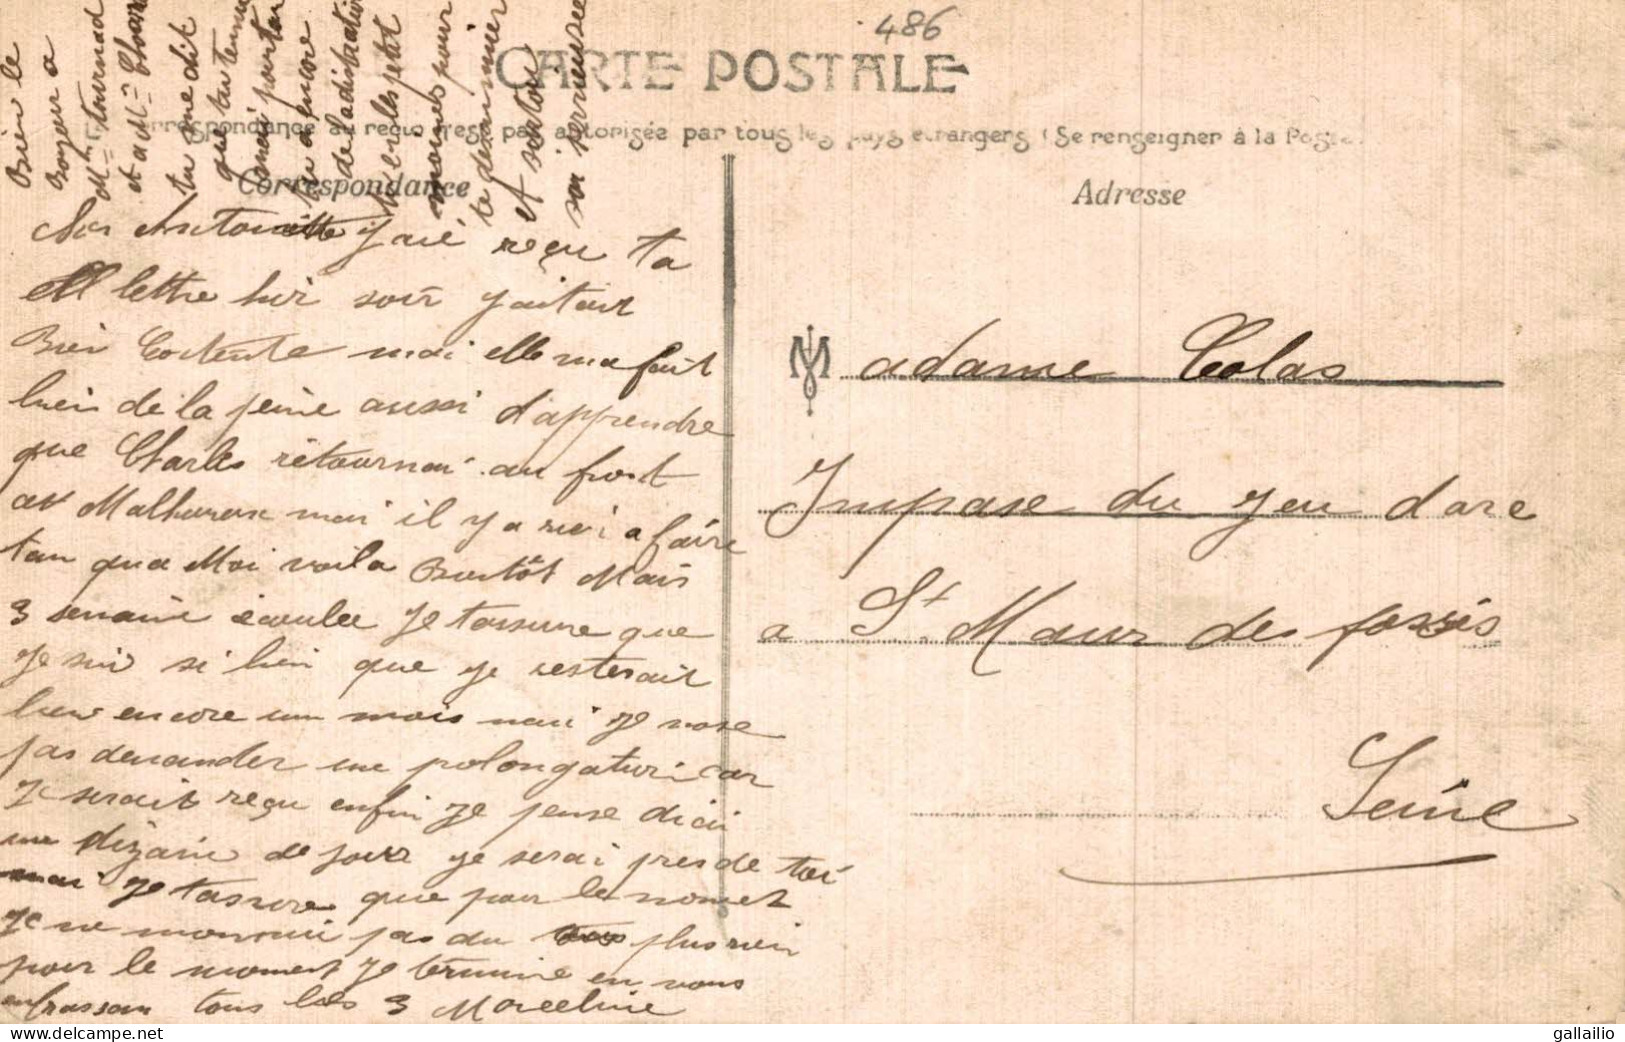 486
CARTE POSTALE
respondance au recto n'est pas autorisée par tous les pays étrangers (Se renseigner à la Poste.
Correspondance
Adresse
Bien le
Bonjour a
tournad
et a
tu me dit
que tu
pourtan
tu a encore
de la distraction
les petit
moines pour
te desennuier
et surtou
soi serrieusee
Antoinette J aié reçu ta
lettre hir soir j aitair
Bien Contente mai elle ma fait
bien de la peine aussi d'apprendre
que Charles retournai au front
Malhureux mai il y a rien a faire
tan qua Moi voila Buntôt Mais
3 semaine écoulee Je tassure que
Je sui si bien que je resterait
bien encore un mois mai Je nose
pas demander une polongation car
Je serait reçu enfin Je pense dici
une dizaine de jour je serai pres de toi
mai Je tassure que pour le moment
Je ne mennui pas du tous plus rien
pour le moment Je termine en vous
enbrassan tous les 3 Marceline
Madame Colas
Impase du jeu d arc
a St Maur des fossés
Seine
gallailio